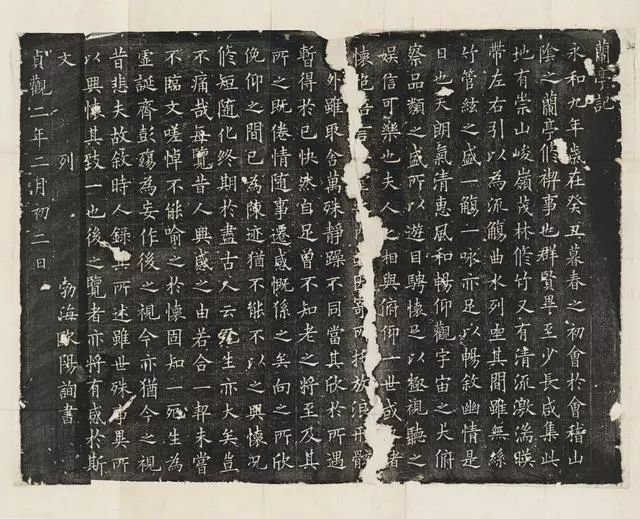 蘭亭記
永和九年歲在癸丑暮春之初會於會稽山
陰之蘭亭修禊事也群賢畢至少長咸集此
地有崇山峻嶺茂林修竹又有清流激湍暎
帶左右引以為流觴曲水列坐其間雖無絲
竹管絃之盛一觴一咏亦足以暢敘幽情是
日也天朗氣清惠風和暢仰觀宇宙之大俯
察品類之盛所以遊目騁懷足以極視聽之
娛信可樂也夫人之相與俯仰一世或者
懷寄所托放浪形骸
外雖取舍萬殊靜躁不同當其欣於所遇
暫得於己快然自足曾不知老之將至及其
所之既倦情隨事遷感慨係之矣向之所欣
俛仰之間已為陳迹猶不能不以之興懷況
修短隨化終期於盡古人云生亦大矣豈
不痛哉每覽昔人興感之由若合一契未嘗
不臨文嗟悼不能喻之於懷固知一死生為
虛誕齊彭殤為妄作後之視今亦猶今之視
昔悲夫故敘時人錄其所述雖世殊事異所
以興懷其致一也後之覽者亦將有感於斯
文 列 勃海歐陽詢書
貞觀二年二月初二日